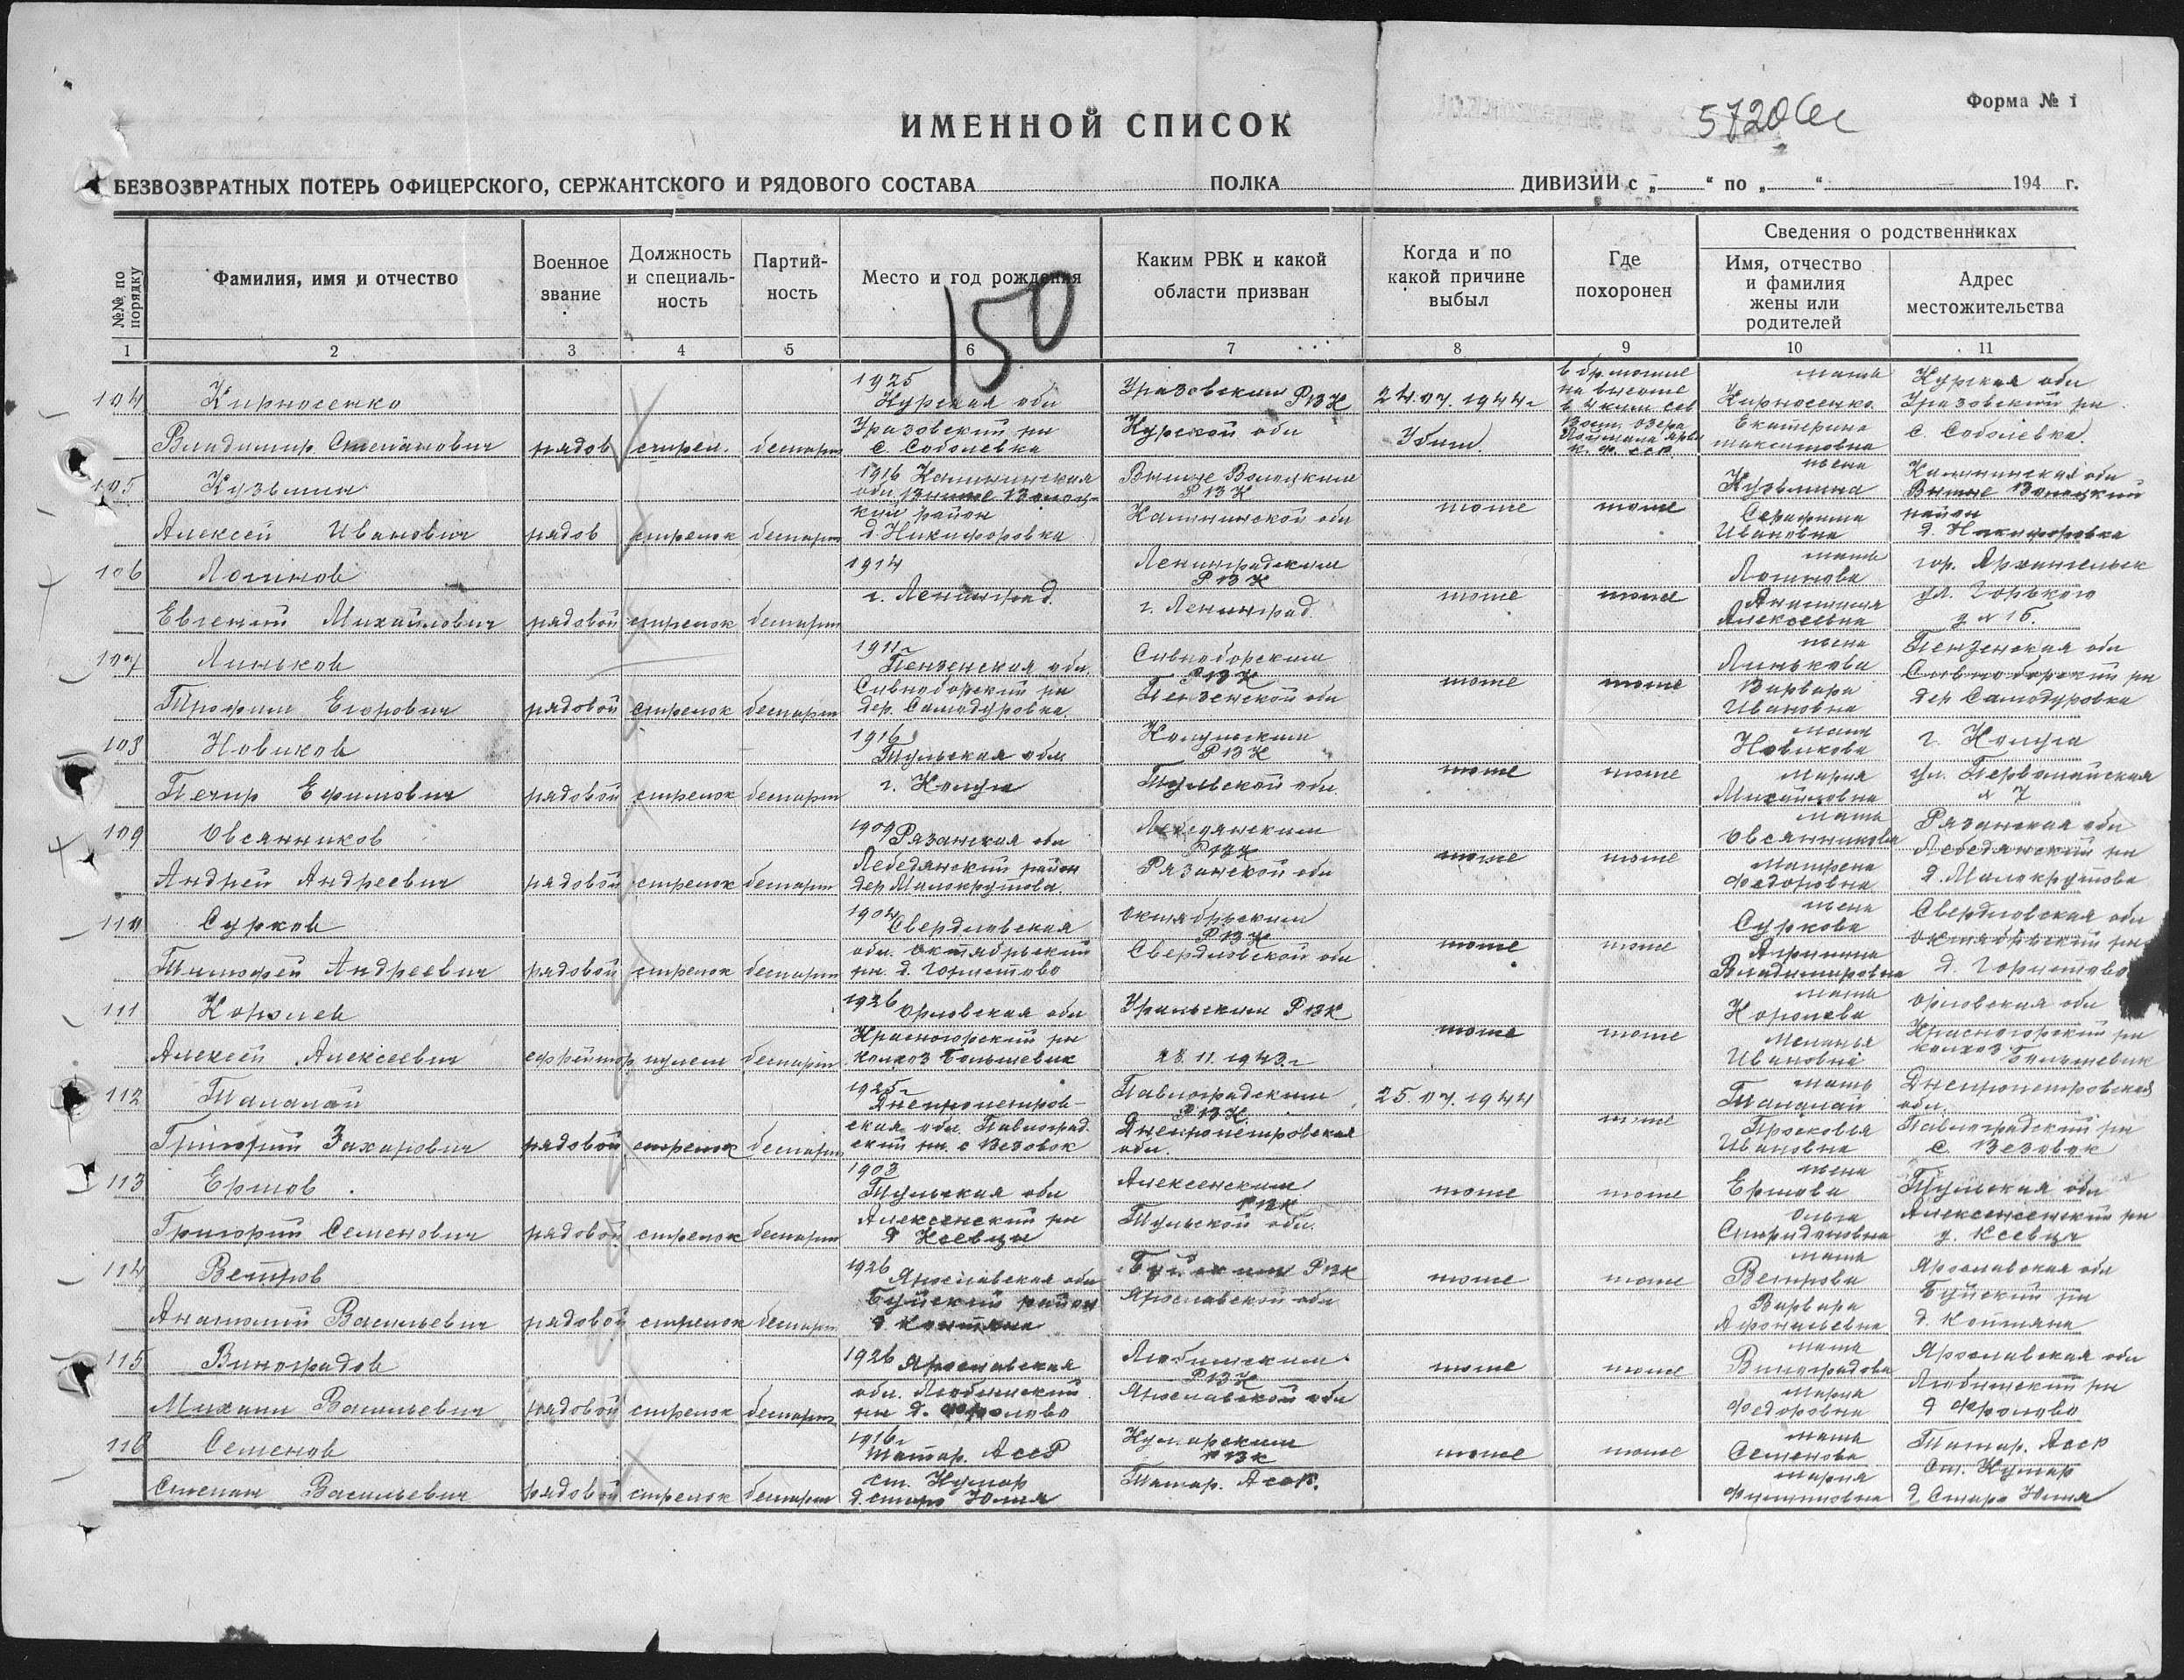 Форма № 1
5720с
ИМЕННОЙ СПИСОК
БЕЗВОЗВРАТНЫХ ПОТЕРЬ ОФИЦЕРСКОГО, СЕРЖАНТСКОГО И РЯДОВОГО СОСТАВА ПОЛКА ДИВИЗИИ с „ “ по „ “ 194 г.
№№ по порядку
Фамилия, имя и отчество
Военное звание
Должность и специаль-ность
Партий-ность
Место и год рождения
Каким РВК и какой области призван
Когда и по какой причине выбыл
Где похоронен
Сведения о родственниках
Имя, отчество и фамилия жены или родителей
Адрес местожительства
1 2 3 4 5 6 7 8 9 10 11
150
104 Кирносенко Владимир Степанович рядов стрел. беспарт
1925 Курская обл Уразовский рн с. Соболевка
Уразовским РВК Курской обл
24.07.1944г Убит.
в бр. могиле на высоте в 4 клм сев вост. озера К. Ф. ССР
мать Кирносенко Екатерина Максимовна
Курская обл Уразовский рн с. Соболевка.
105 Кузьмин Алексей Иванович рядов стрелок беспарт
1916 Калининская обл. Вышне Волоц-кий район д. Никифоровка
Вышне Волоцким РВК Калининской обл
тоже тоже
жена Кузьмина Серафима Ивановна
Калининская обл Вышне Волоцкий район д. Никифоровка
106 Логинов Евгений Михайлович рядовой стрелок беспарт
1914 г. Ленинград
Ленинградским РВК г. Ленинград
тоже тоже
мать Логинова Алексеевна
гор. Архангельск ул. Горького
107 Линьков Трофим Егорович рядовой стрелок беспарт
1911г Пензенская обл. рн дер. Самодуровка
РВК Пензенской обл
тоже тоже
жена Линькова Варвара Ивановна
Пензенская обл рн дер Самодуровка
108 Новиков Петр Ефимович рядовой стрелок беспарт
1916 Тульская обл г. Калуга
Калужским РВК Тульской обл
тоже тоже
мать Новикова Мария Михайловна
г. Калуга ул. Первомайская № 7
109 Овсянников Андрей Андреевич рядовой стрелок беспарт
1909 Рязанская обл Лебедянский район дер Малокрутова
Лебедянским РВК Рязанской обл
тоже тоже
мать Овсянникова Матрена Федоровна
Рязанская обл Лебедянский рн д. Малокрутова
110 Сурков Тимофей Андреевич рядовой стрелок беспарт
1904 Свердловская обл. Октябрьский рн. д.
Октябрьским РВК Свердловской обл
тоже тоже
жена Суркова Владимировна
Свердловская обл Октябрьский рн д.
111 Королев Алексей Алексеевич ефрейтор пулем беспарт
1926 Орловская обл Красногорский рн колхоз Большевик
Уральским РВК 28.11.1943г
тоже тоже
мать Королева Меланья Ивановна
Орловская обл Красногорский рн колхоз Большевик
112 Талалай Григорий Захарович рядовой стрелок беспарт
1925г Днепропетров-ская обл. Павлоград-ский рн. с Везовок
Павлоградским РВК Днепропетровская обл.
25.07.1944
тоже
мать Талалай Прасковья Ивановна
Днепропетровская обл. Павлоградский рн с. Везовок
113 Ершов Григорий Семенович рядовой стрелок беспарт
1903 Тульская обл Алексенский рн д
Алексенским РВК Тульской обл.
тоже тоже
жена Ершова Ольга Спиридоновна
Тульская обл рн д.
114 Ветров Анатолий Васильевич рядовой стрелок беспарт
1926 Ярославская обл Буйский район д.
Буйским РВК Ярославской обл
тоже тоже
мать Ветрова Варвара Афонасьевна
Ярославская обл Буйский рн д.
115 Виноградов Михаил Васильевич рядовой стрелок беспарт
1926 Ярославская обл. Любимский рн д. Фролово
Любимским РВК Ярославской обл
тоже тоже
мать Виноградова Мария Федоровна
Ярославская обл Любимский рн д Фролово
116 Семенов Степан Васильевич рядовой стрелок беспарт
1916г Татар. АССР ст. Кумор д. Старо Юмья
Куморским РВК Татар. АССР.
тоже тоже
мать Семенова Мария Филипповна
Татар. АССР ст. Кумор д Старо Юмья